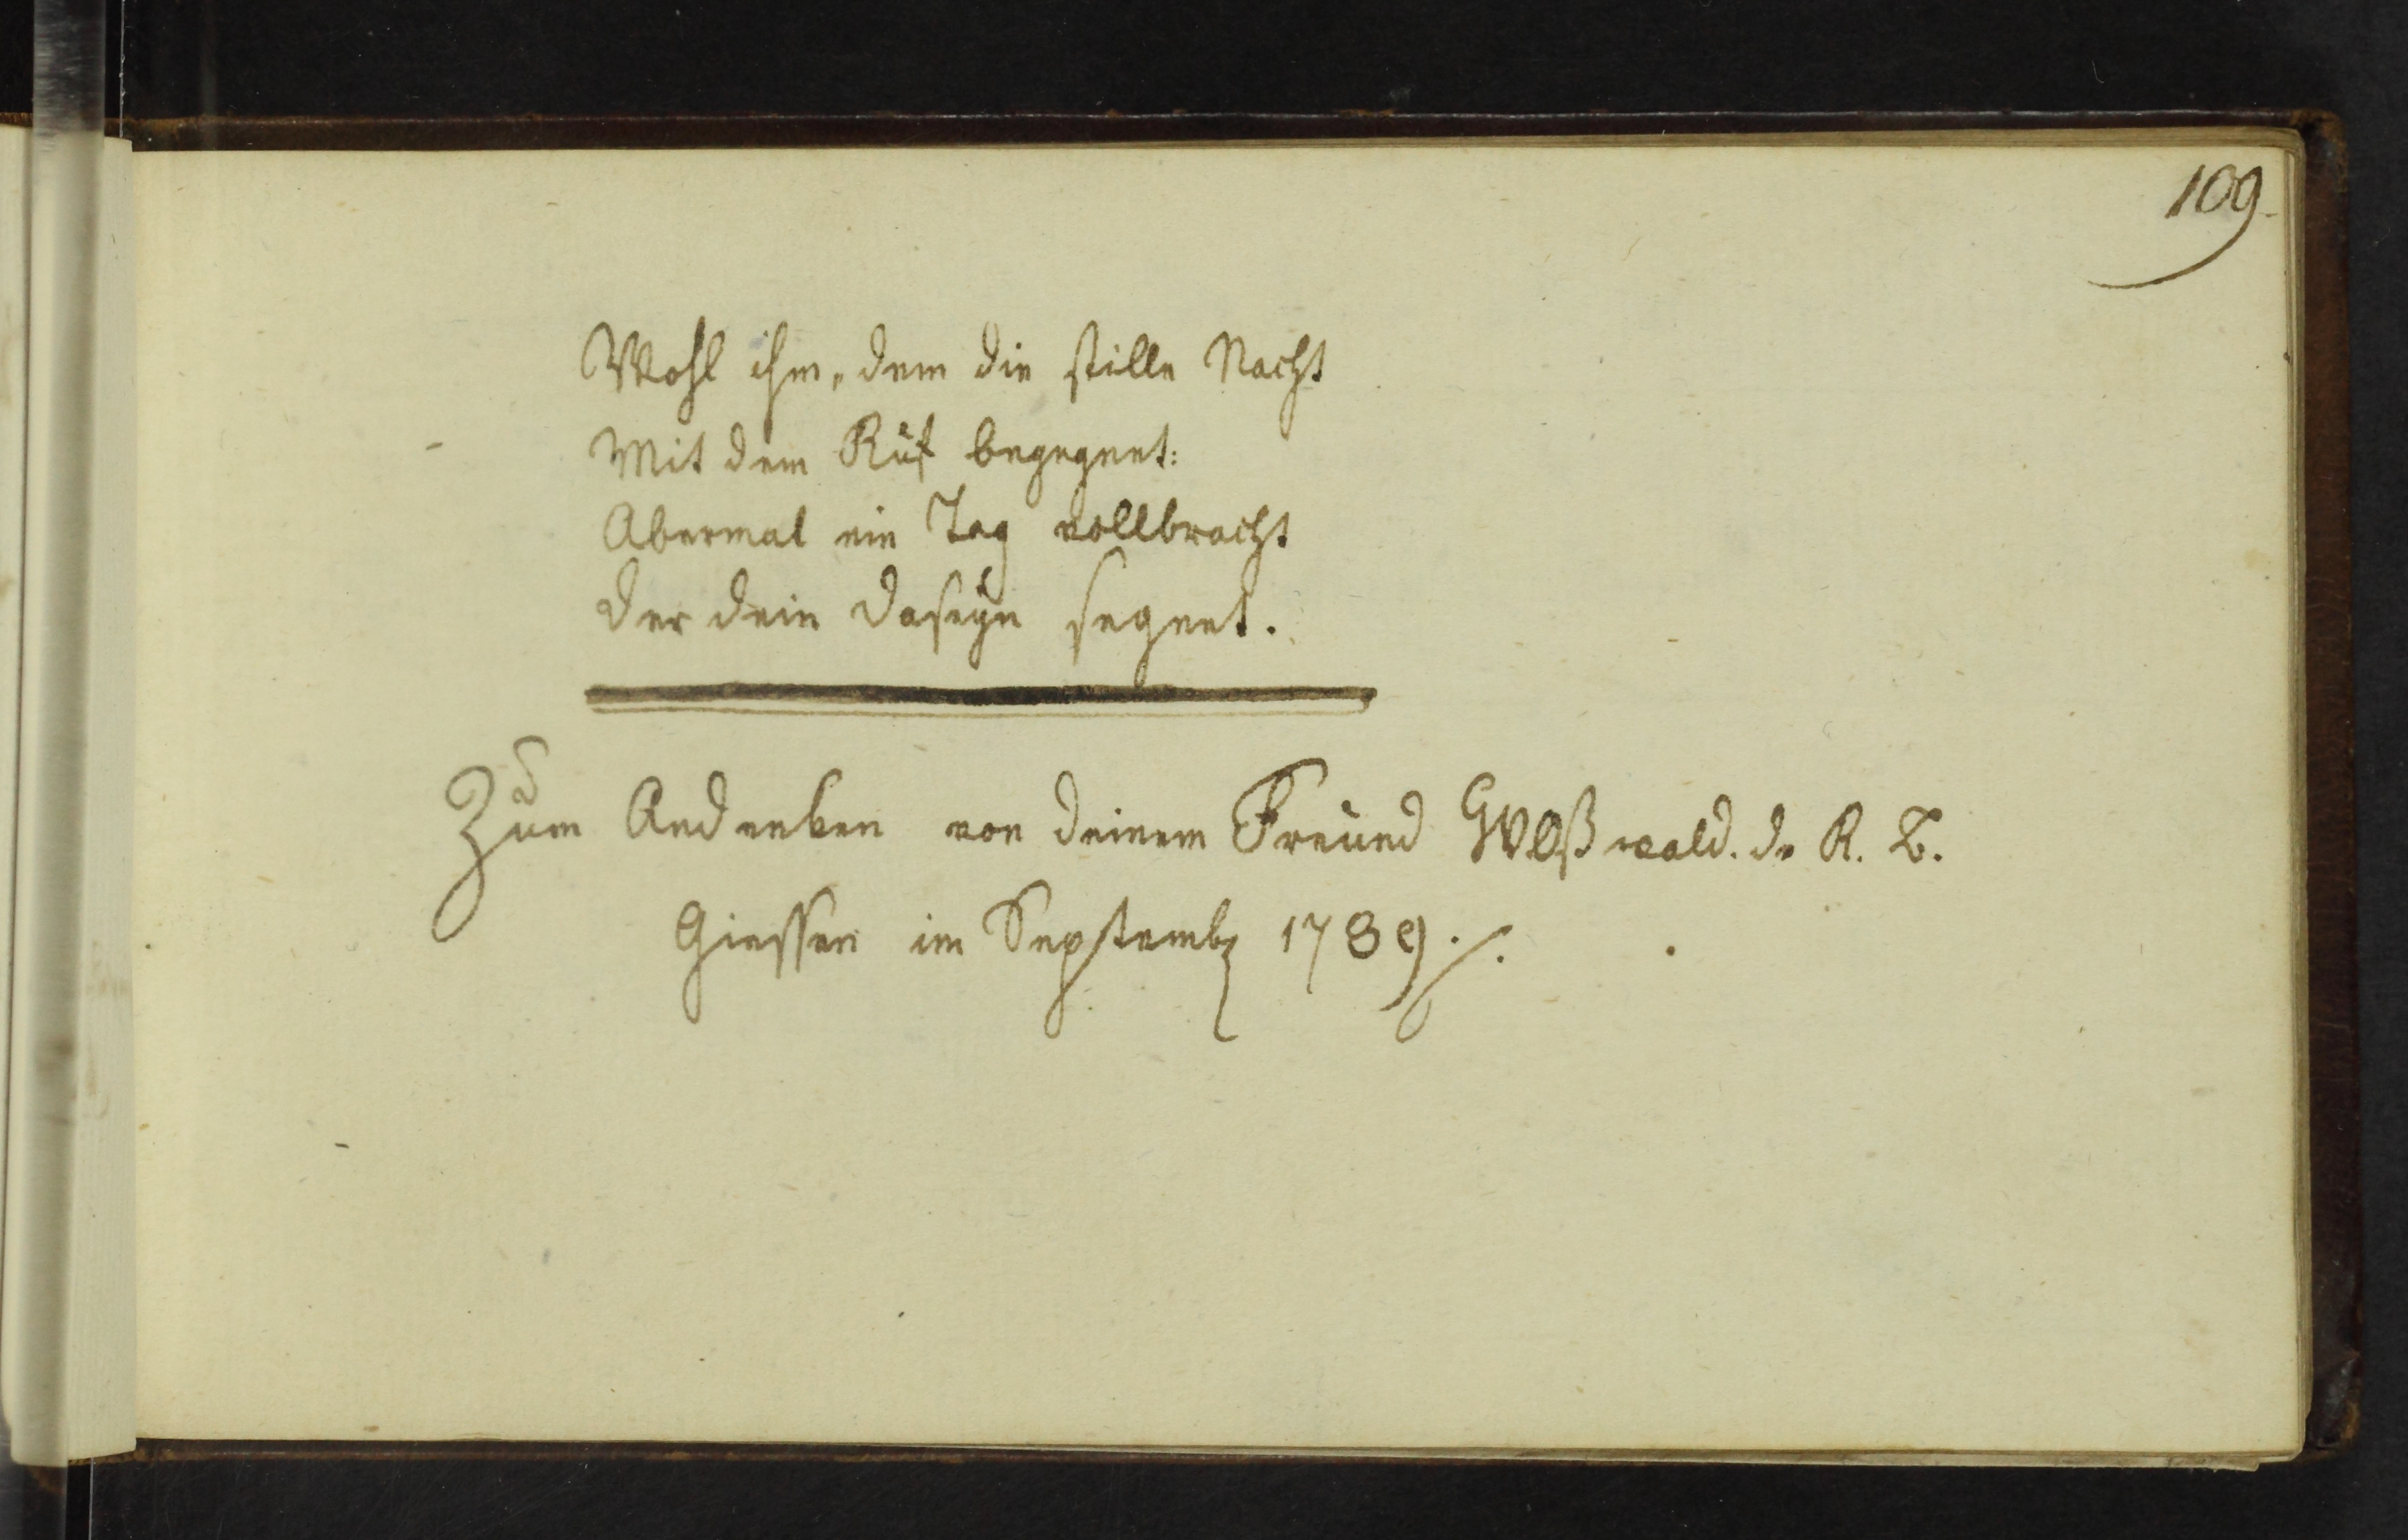 109.
Wohl ihm, dem die stille Nacht
Mit dem Ruf begegnet:
Abermal ein Tag vollbracht
der dein daseÿn segnet.
Zum Andenken von deinem Freund d. R. B.
Giessen im Septembr 1789./.